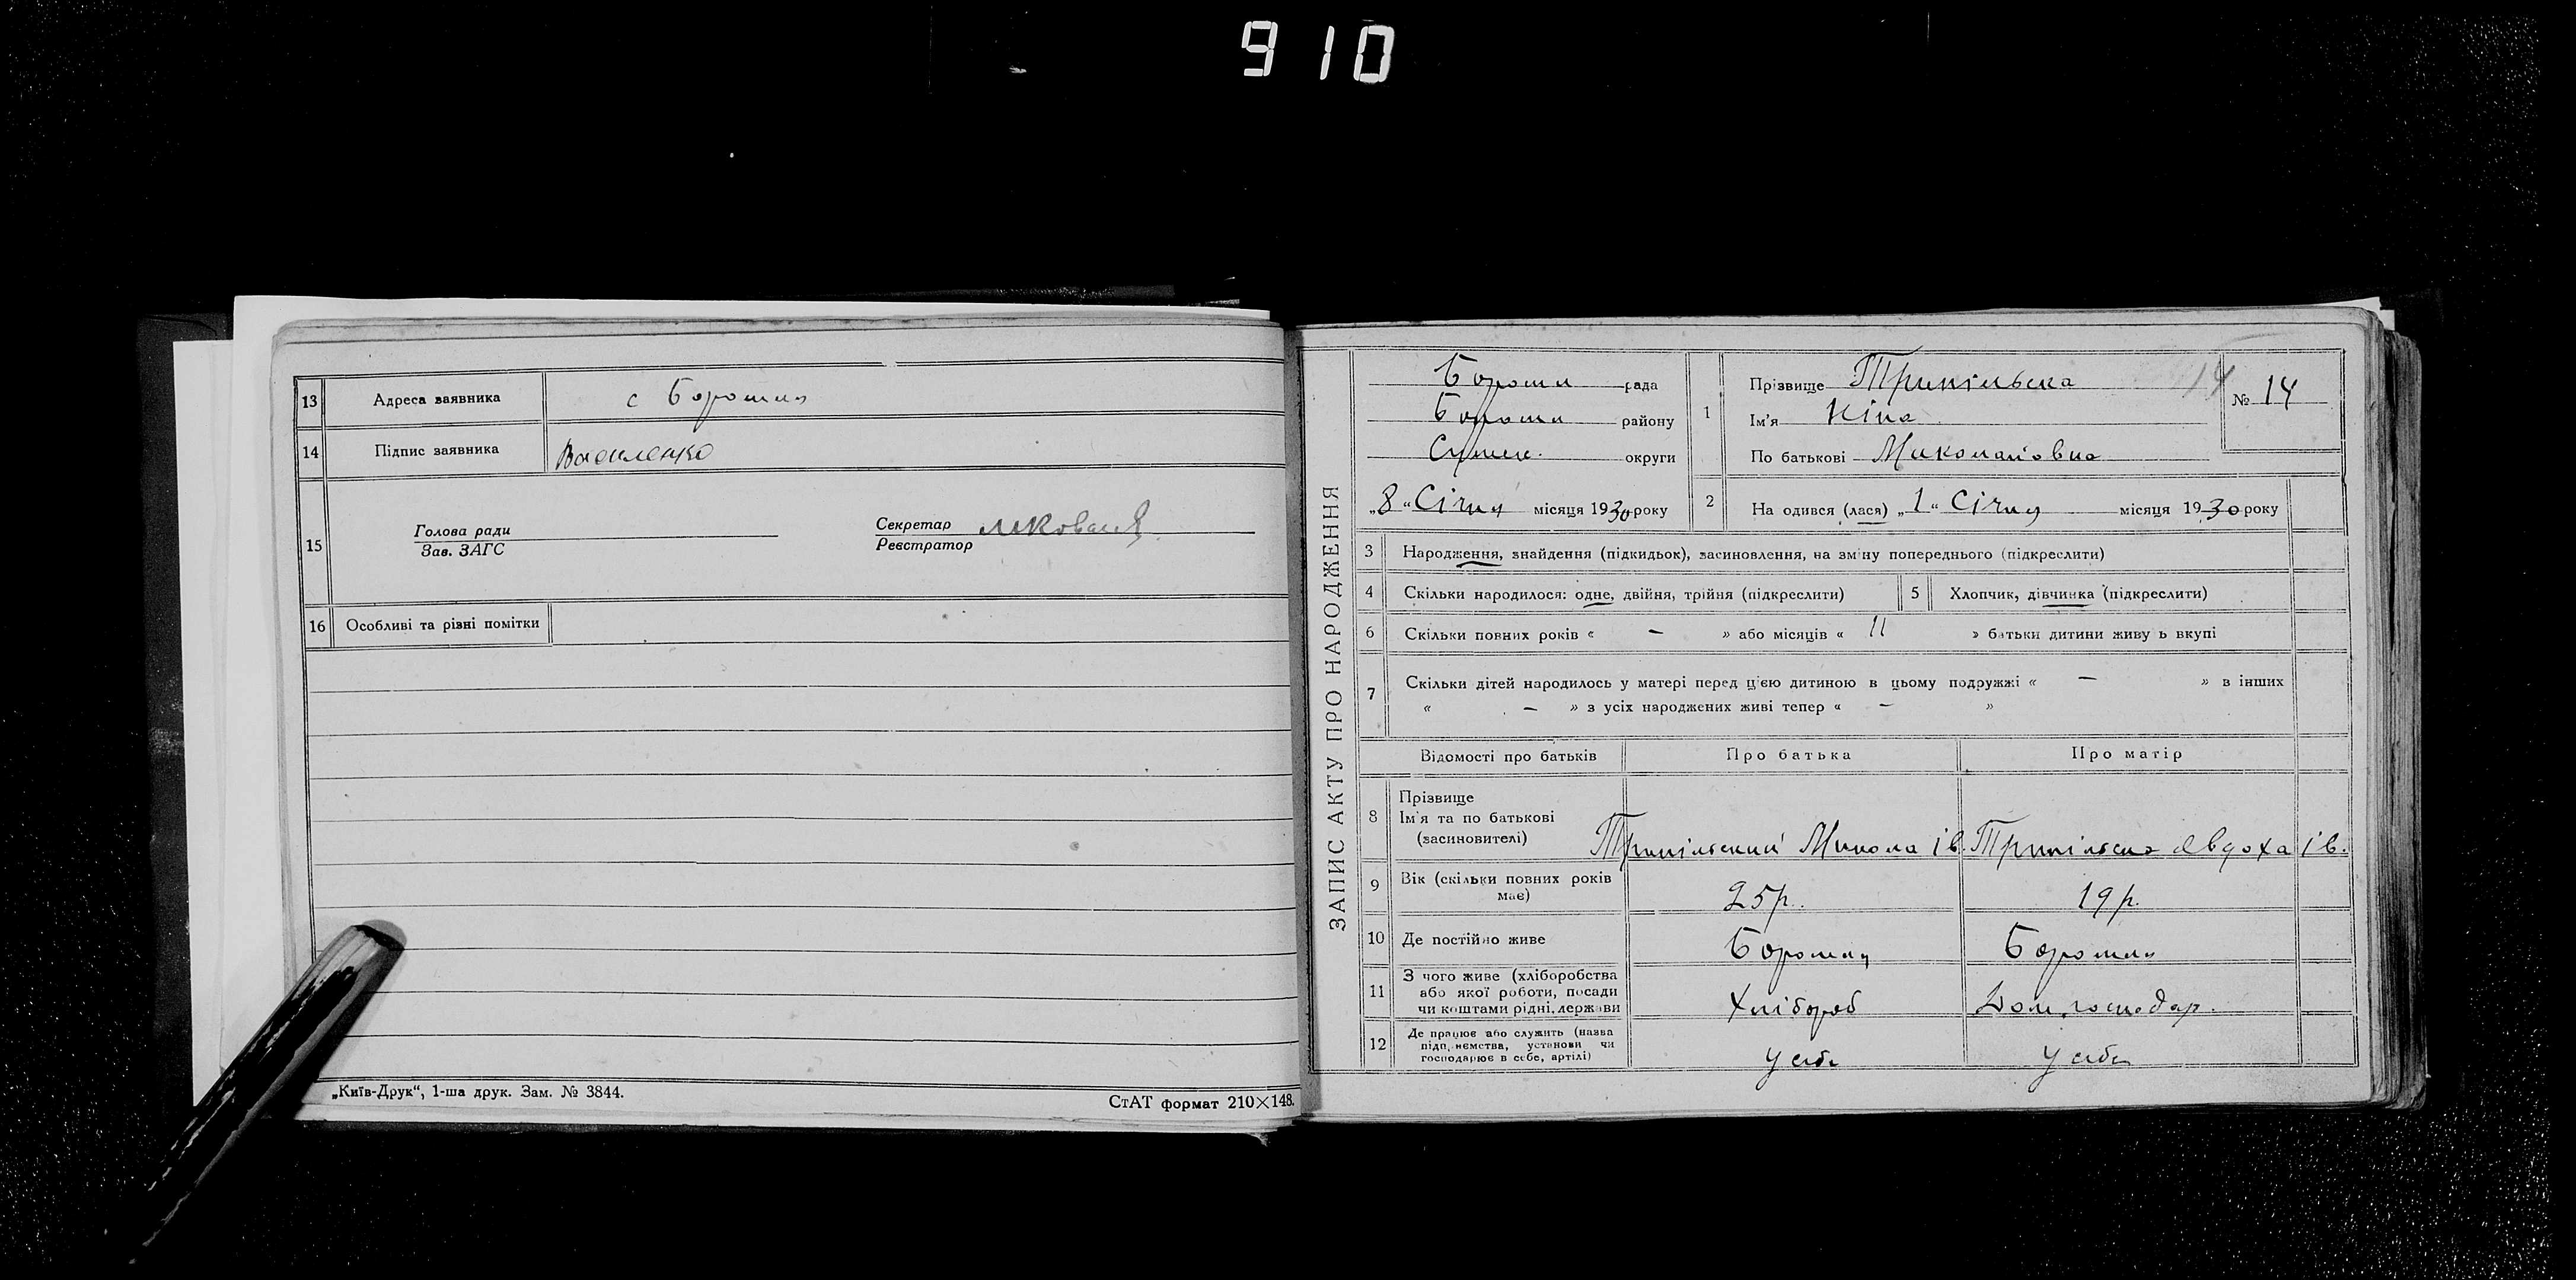 910
13 Адреса заявника с Боромля
14 Підпис заявника Василенко
15 Голова ради
Зав. ЗАГС
Секретар
Реєстратор
16 Особливі та різні помітки
„Київ-Друк“, 1-ша друк. Зам. № 3844.
СтАТ формат 210×148.
ЗАПИС АКТУ ПРО НАРОДЖЕННЯ
Боромл рада
Боромл району
Сумск. округи
„8“ Січня місяця 1930 року
1 Прізвище Трипільська
Ім'я Ніна
По батькові Миколаївна
14
№ 14
2 На одився (лася) „1“ Січня місяця 1930 року
3 Народження, знайдення (підкидьок), засиновлення, на зміну попереднього (підкреслити)
4 Скільки народилося: одне, двійня, трійня (підкреслити)
5 Хлопчик, дівчинка (підкреслити)
6 Скільки повних років « – » або місяців « 11 » батьки дитини живу ь вкупі
7 Скільки дітей народилось у матері перед цією дитиною в цьому подружжі « – » в інших
« – » з усіх народжених живі тепер « – »
Відомості про батьків Про батька Про матір
8 Прізвище
Ім'я та по батькові
(засиновителі) Трипільский Микола Ів. Трипільска Явдоха Ів.
9 Вік (скільки повних років
має) 25 р. 19 р.
10 Де постійно живе Боромля Боромля
11 З чого живе (хліборобства
або якої роботи, посади
чи коштами рідні, держави Хлібороб Дом. господар.
12 Де працює або служить (назва
підп. ємства, установи чи
господарює в себе, артілі) У себе У себе